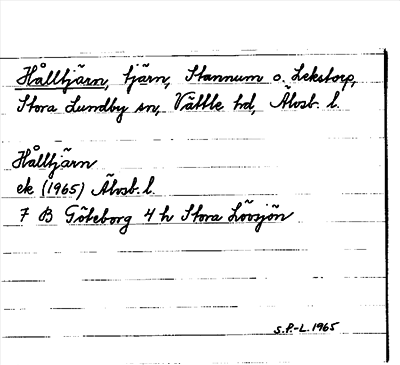 Hålltjärn, tjärn, Stannum o. Lekstorp,
Stora Lundby sn, Vättle hd, Älvsb. l.
Hålltjärn
ek (1965) Älvsb. l.
7 B Göteborg 4 h Stora Lövsjön
S.P.-L. 1965